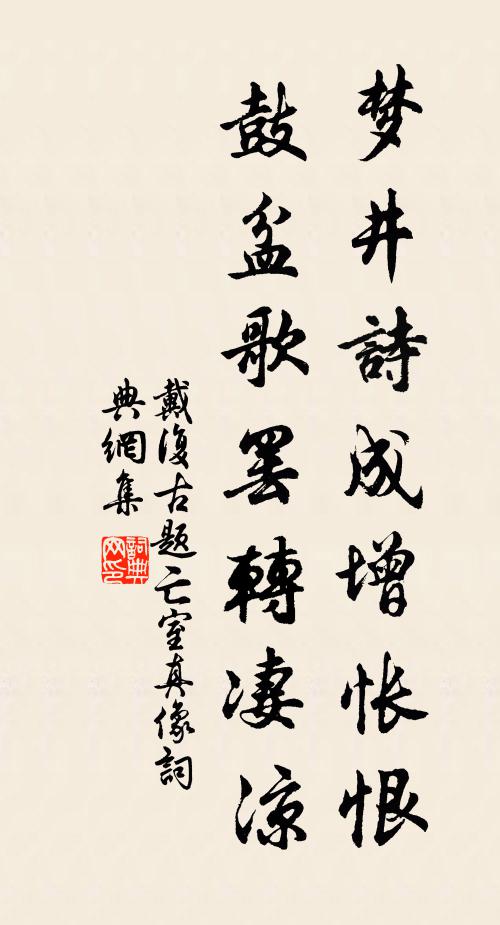 梦井詩成增怅恨
鼓盆歌罢轉凄涼
戴復古题亡室真像詞
典網集
詞典网印